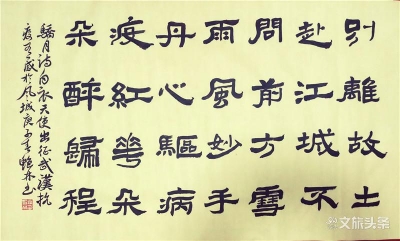 别離故土
赴江城不
問前方雪
雨風妙手
丹心驅病
疫紅華朵
朵醉歸程
月詩白衣天使出征武漢抗
疫有感於風城庚子春林書
文旅头条